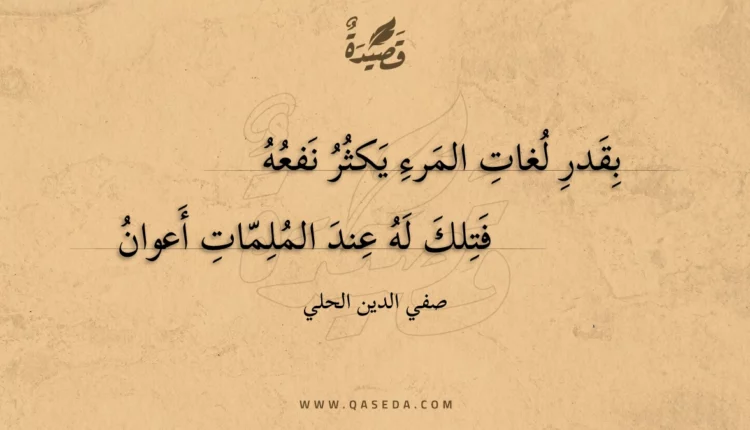 قَصِيْدَةٌ
بِقَدرِ لُغاتِ المَرءِ يَكثُرُ نَفعُهُ
فَتِلكَ لَهُ عِندَ المُلِمّاتِ أَعوانُ
صفي الدين الحلي
WWW.QASEDA.COM